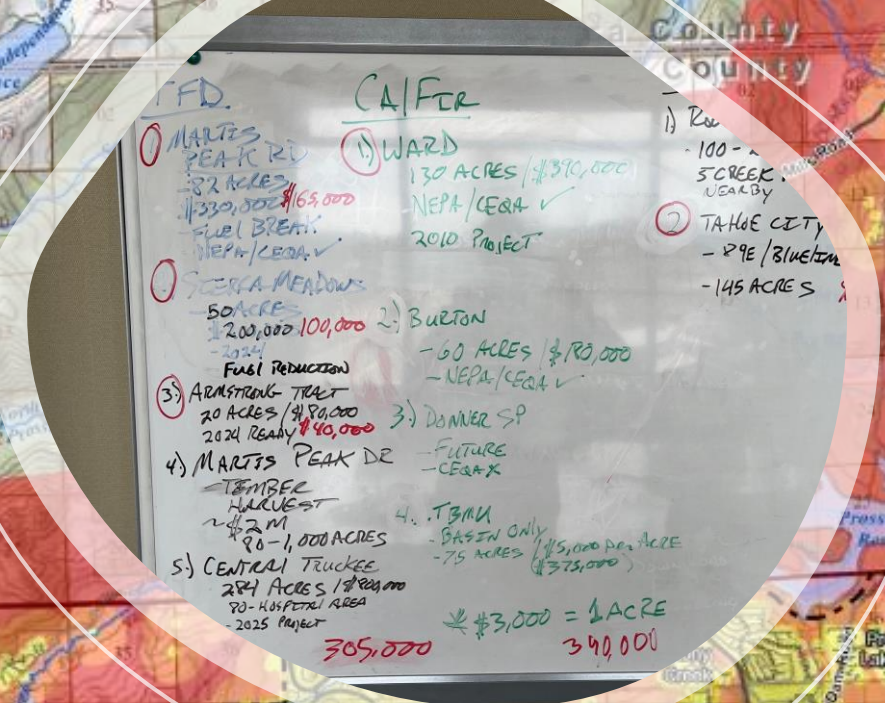 TFD
1 MARTIS
PEAK RD
-82 ACRES
$330,000 $165,000
-FUEL BREAK
NEPA/CEQA ✓
SIERRA MEADOWS
50 ACRES
$200,000 100,000
-2024
FUEL REDUCTION
3.) ARMSTRONG TRACT
20 ACRES/$80,000
2024 READY $40,000
4.) MARTIS PEAK DR
-TIMBER
HARVEST
~$2M
80-1,000 ACRES
5.) CENTRAL TRUCKEE
284 ACRES/$800,000
80-HOSPITAL AREA
-2025 PROJECT
305,000
CAL FIR
1.) WARD
130 ACRES/$390,000
NEPA/CEQA ✓
2010 PROJECT
2.) BURTON
-60 ACRES/$180,000
-NEPA/CEQA ✓
3.) DONNER SP
-FUTURE
-CEQA X
4. TBMU
-BASIN ONLY
-75 ACRES/$5,000 per ACRE
($375,000)
* $3,000 = 1 ACRE
390,000
1)
-100-
5 CREEK
NEARBY
2 TAHOE CITY
-89E/BlueLine
-145 ACRES
County
County
02
Mills Road
12
13
35
35
Creek